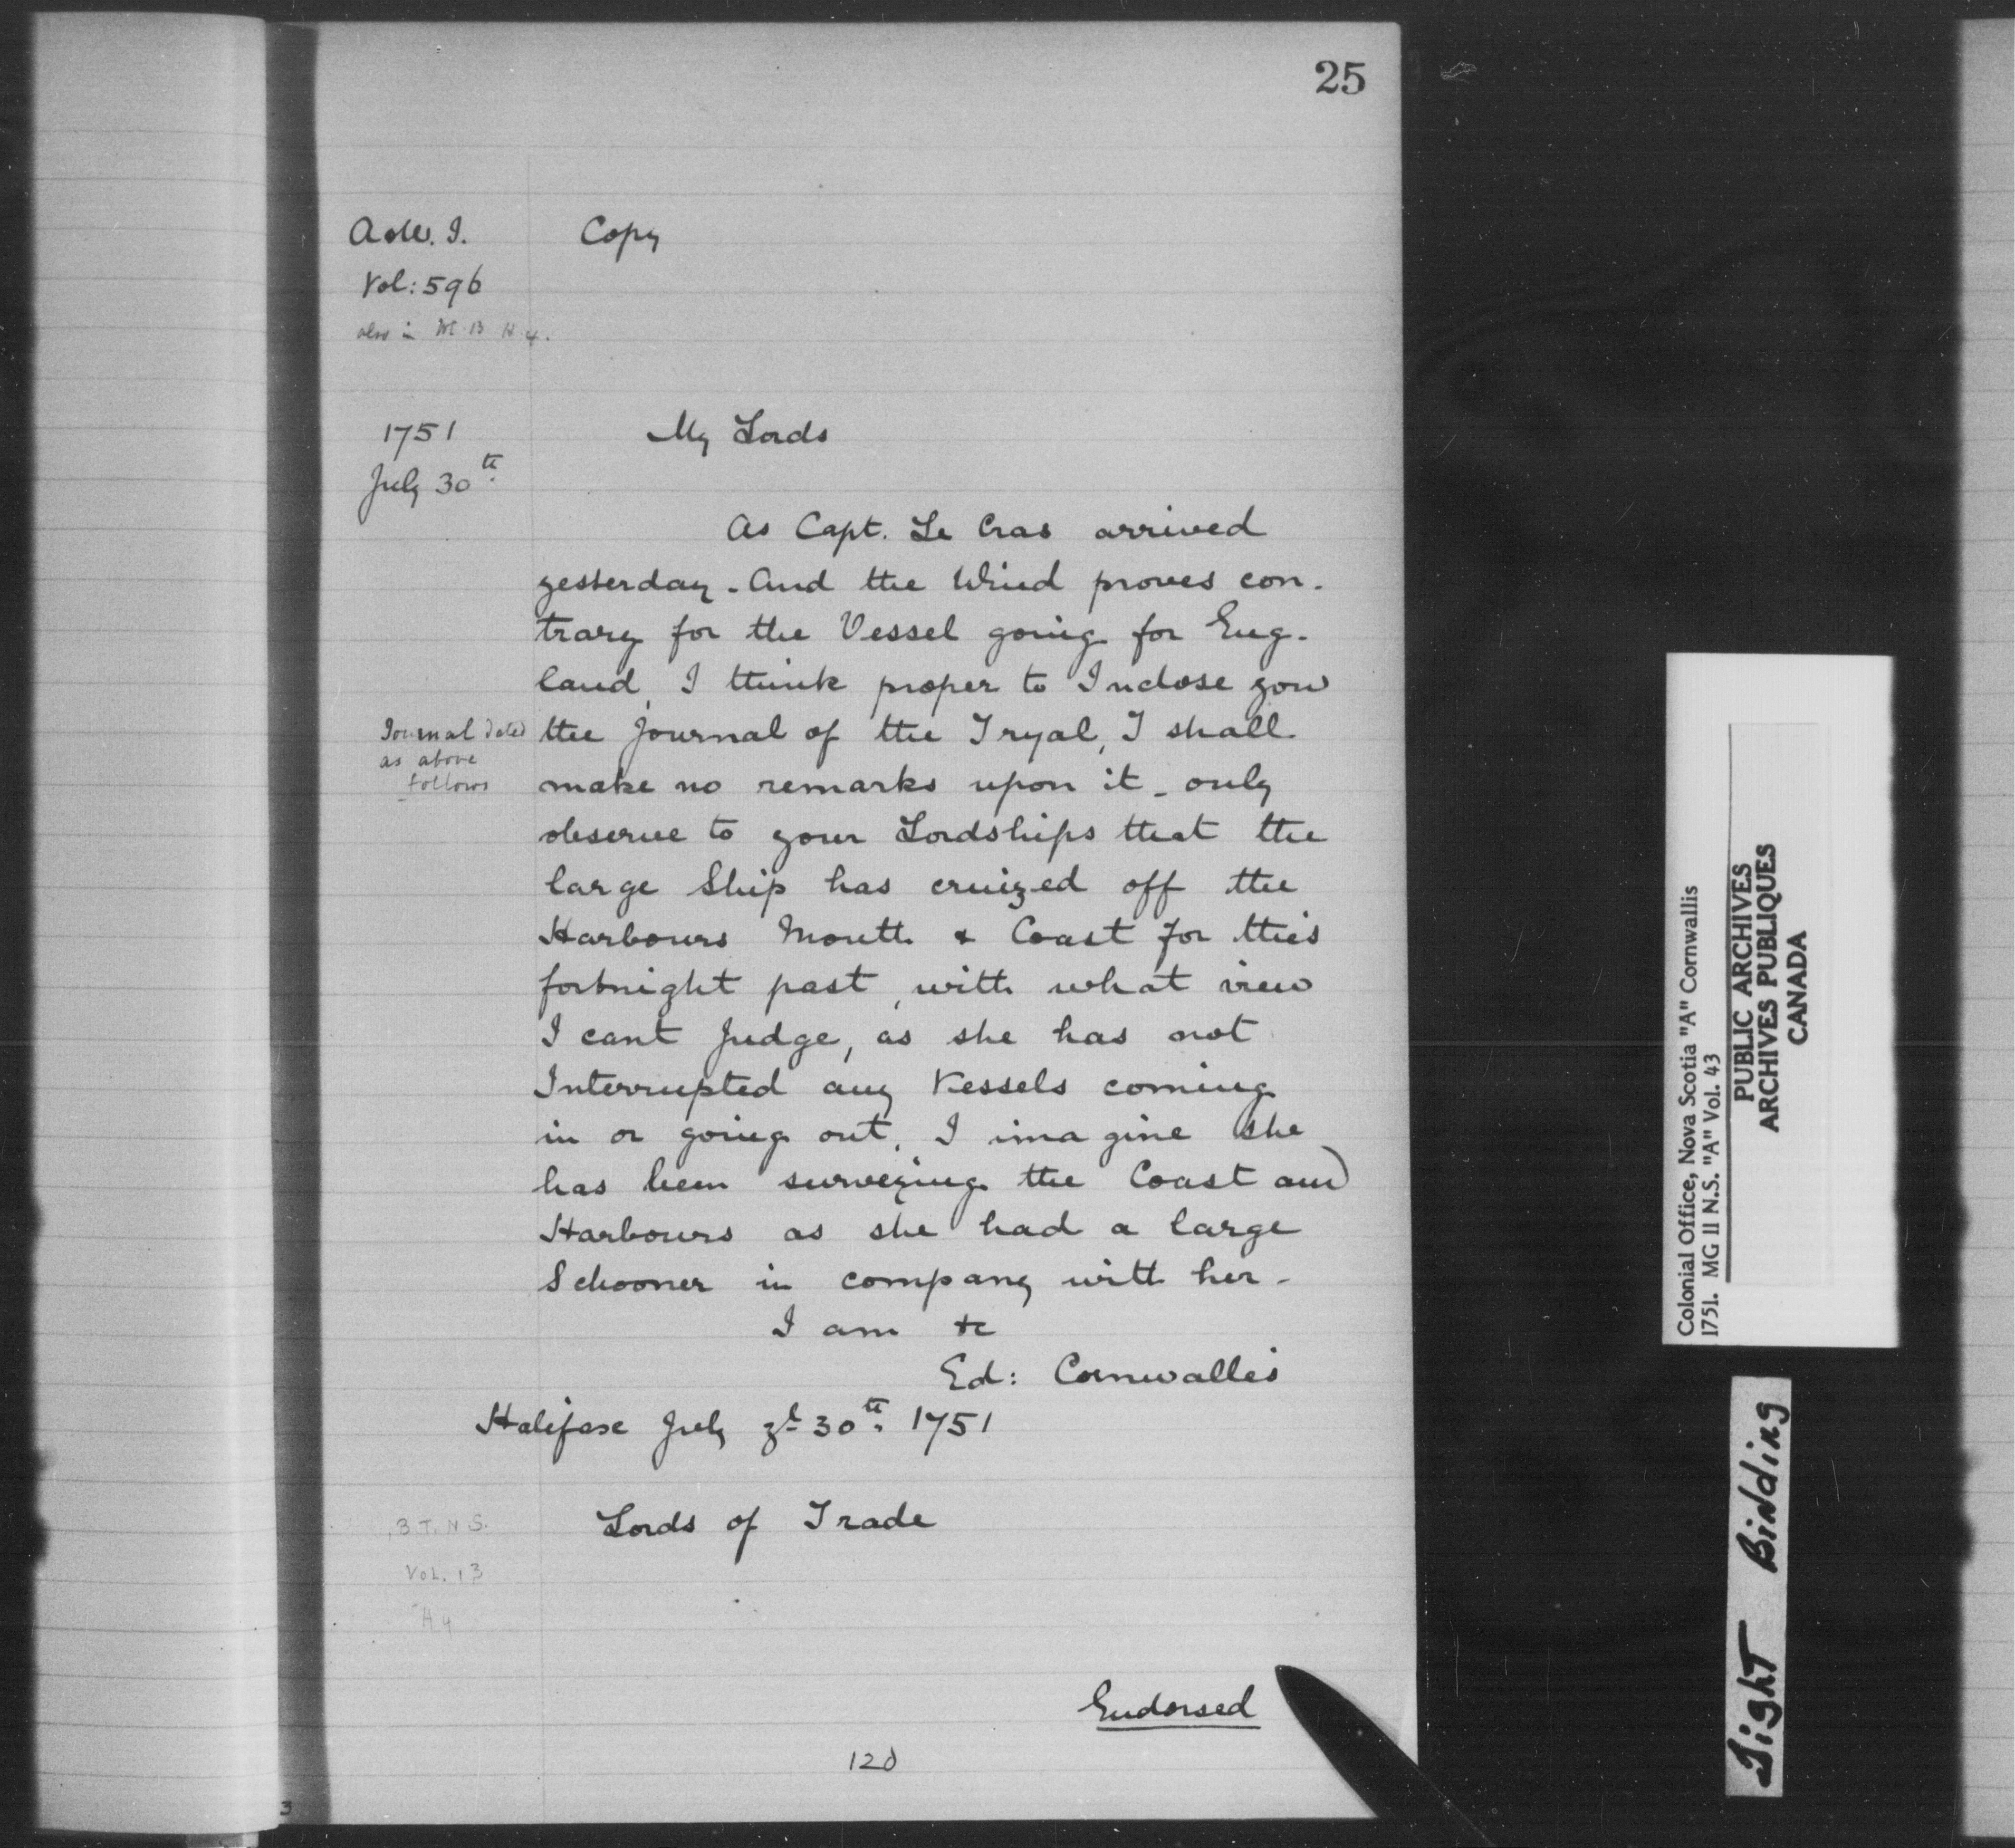 25
Adm. I.
Vol: 596
also in
Copy
1751
July 30th
My Lords
As Capt. Le Cras arrived
yesterday. And the Wind proves con-
trary for the Vessel going for Eng-
land, I think proper to Inclose you
the Journal of the Tryal, I shall
Journal dated
as above
follows
make no remarks upon it - only
observe to your Lordships that the
large Ship has cruized off the
Harbours Mouth & Coast for this
fortnight past, with what view
I cant Judge, as she has not
Interrupted any Vessels coming
in or going out, I imagine she
has been surveying the Coast and
Harbours as she had a large
Schooner in company with her -
I am &c
Ed: Cornwallis
Halifax July ye 30th. 1751
Lords of Trade
B.T. N.S.
Vol. 13
H 4
Endorsed
120
3
Colonial Office, Nova Scotia "A" Cornwallis
1751. MG 11 N.S. "A" Vol. 43
PUBLIC ARCHIVES
ARCHIVES PUBLIQUES
CANADA
Tight Binding